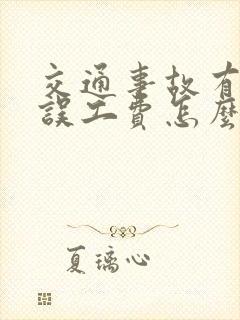 交通事故有
誤工費怎麼
夏璃心